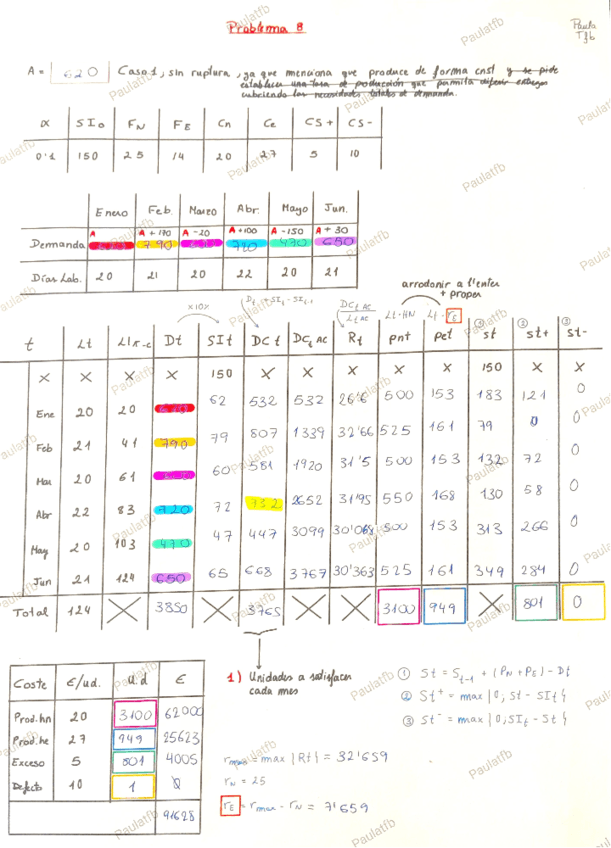 Problema 8
Paula
Tfb
A = 620 Caso 1, sin ruptura, ya que menciona que produce de forma cnst y se pide
establecer una tasa de producción que permita diferir entregas
cubriendo las necesidades totales de demanda.
α SI0 FN FE Cn Ce CS+ CS-
0'1 150 25 14 20 27 5 10
Enero Feb. Marzo Abr. Mayo Jun.
A A+170 A-20 A+100 A-150 A+30
Demanda 790 720 470 650
Días Lab. 20 21 20 22 20 21
arrodonir a l'enter
+ proper
x10% Dt + SIt - SIt-1 DCt AC / Lt AC Lt·HN Lt·rE
t Lt Dt SIt DCt DCt AC Rt pnt pet st st+ st-
X X X X 150 X X X X X 150 X X
Ene 20 20 62 532 532 26'6 500 153 183 121 0
Feb 21 41 790 79 807 1339 32'66 525 161 79 0 0
Mar 20 61 60 581 1920 31'5 500 153 132 72 0
Abr 22 83 720 72 732 2652 31'95 550 168 130 58 0
May 20 103 470 47 447 3099 500 153 313 266 0
Jun 21 124 650 65 668 3767 30'363 525 161 349 284 0
Total 124 X 3850 X 3765 X X 3100 949 X 801 0
Coste €/ud. u.d €
Prod.hn 20 3100 62000
Prod.he 27 949 25623
Exceso 5 801 4005
Defecto 10 1 0
91628
1) Unidades a satisfacer
cada mes
rmax = max |Rt| = 32'659
rN = 25
rE = rmax - rN = 7'659
① St = St-1 + (PN + PE) - Dt
② St+ = max {0, St - SIt}
③ St- = max {0, SIt - St}
Paulatfb